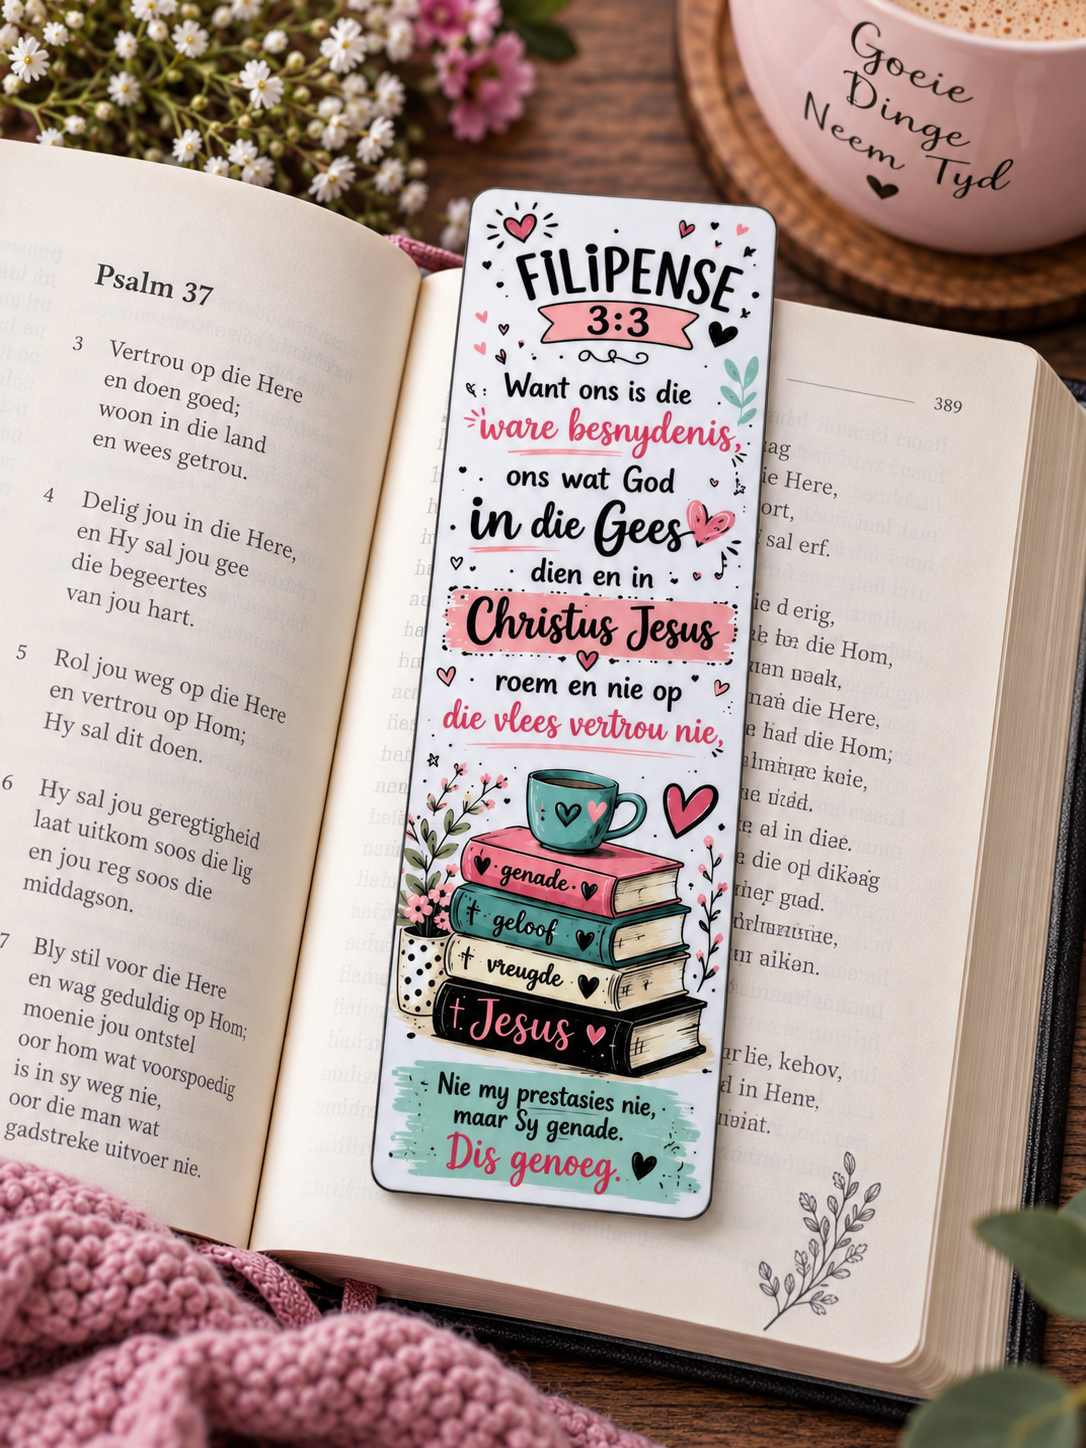 Goeie
Dinge
Neem Tyd
Psalm 37
3 Vertrou op die Here
en doen goed;
woon in die land
en wees getrou.
4 Delig jou in die Here,
en Hy sal jou gee
die begeertes
van jou hart.
5 Rol jou weg op die Here
en vertrou op Hom;
Hy sal dit doen.
6 Hy sal jou geregtigheid
laat uitkom soos die lig
en jou reg soos die
middagson.
7 Bly stil voor die Here
en wag geduldig op Hom;
moenie jou ontstel
oor hom wat voorspoedig
is in sy weg nie,
oor die man wat
gadstreke uitvoer nie.
FILIPENSE
3:3
Want ons is die
ware besnydenis,
ons wat God
in die Gees
dien en in
Christus Jesus
roem en nie op
die vlees vertrou nie,
genade
geloof
vreugde
Jesus
Nie my prestasies nie,
maar Sy genade.
Dis genoeg.
389
Here,
sal erf.
die Hom,
die Here,
die Hom;
al in
die
kehov,
in